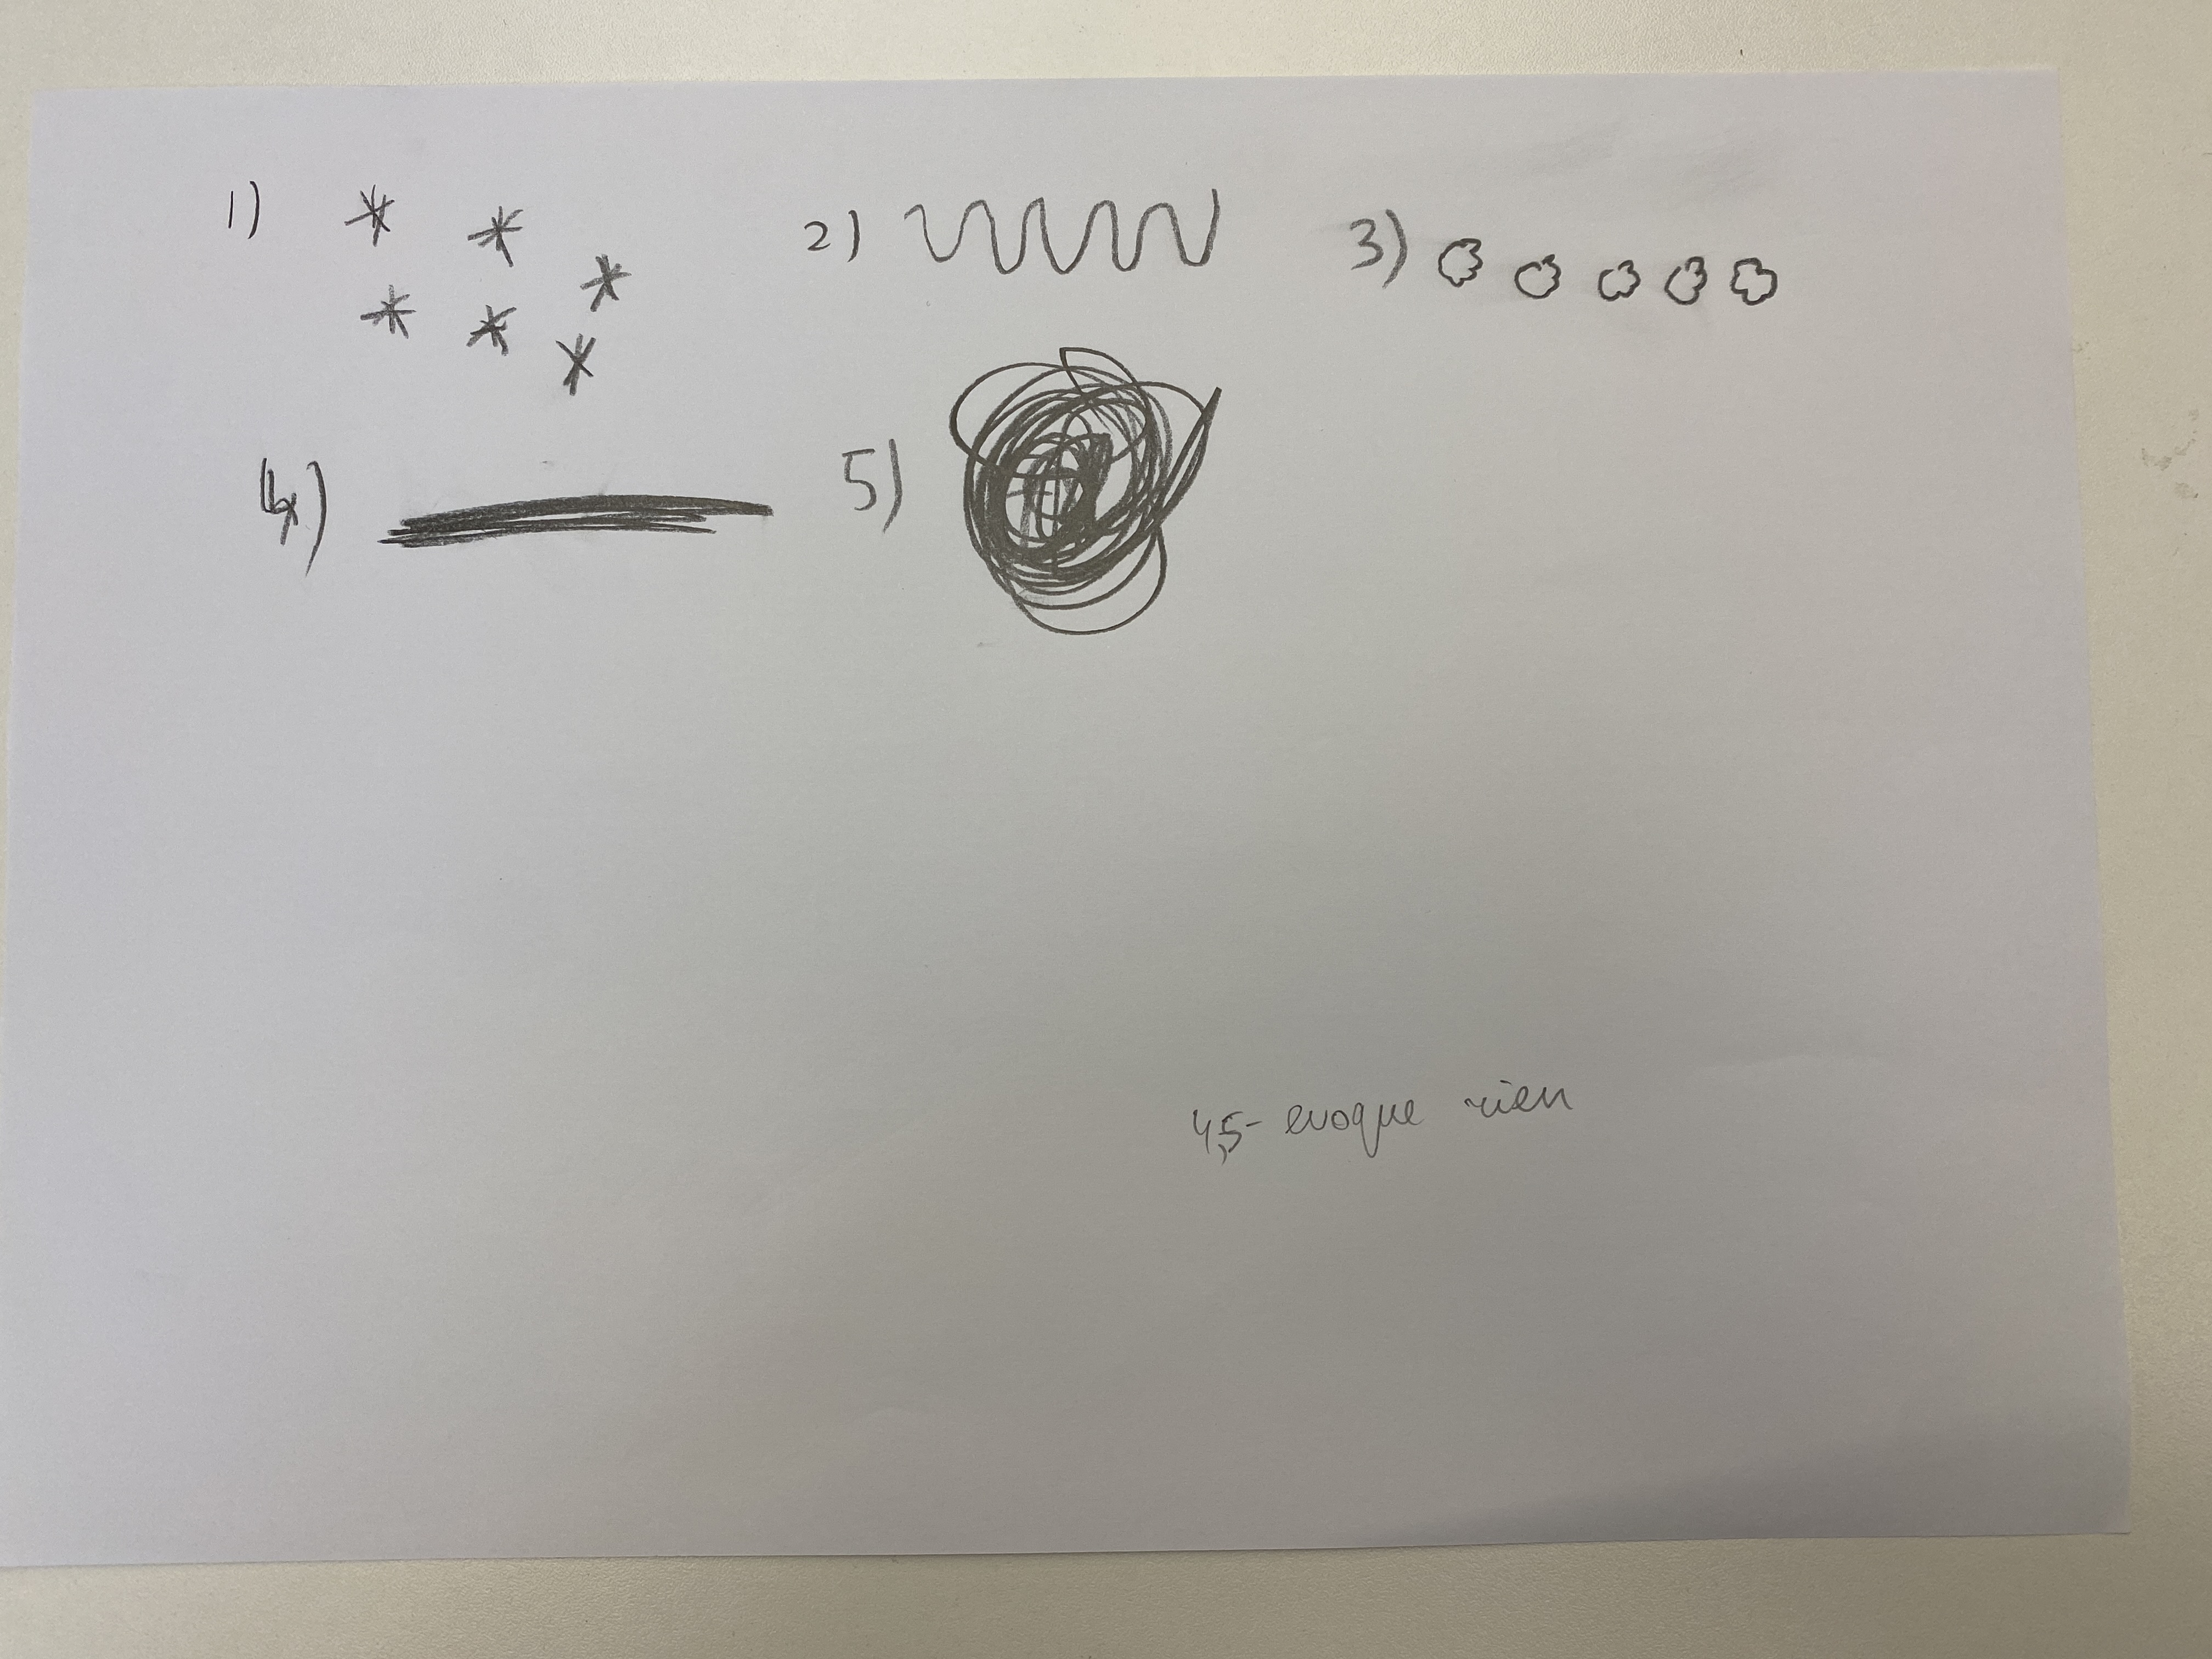 1)
2)
3)
4)
5)
4,5- evoque rien